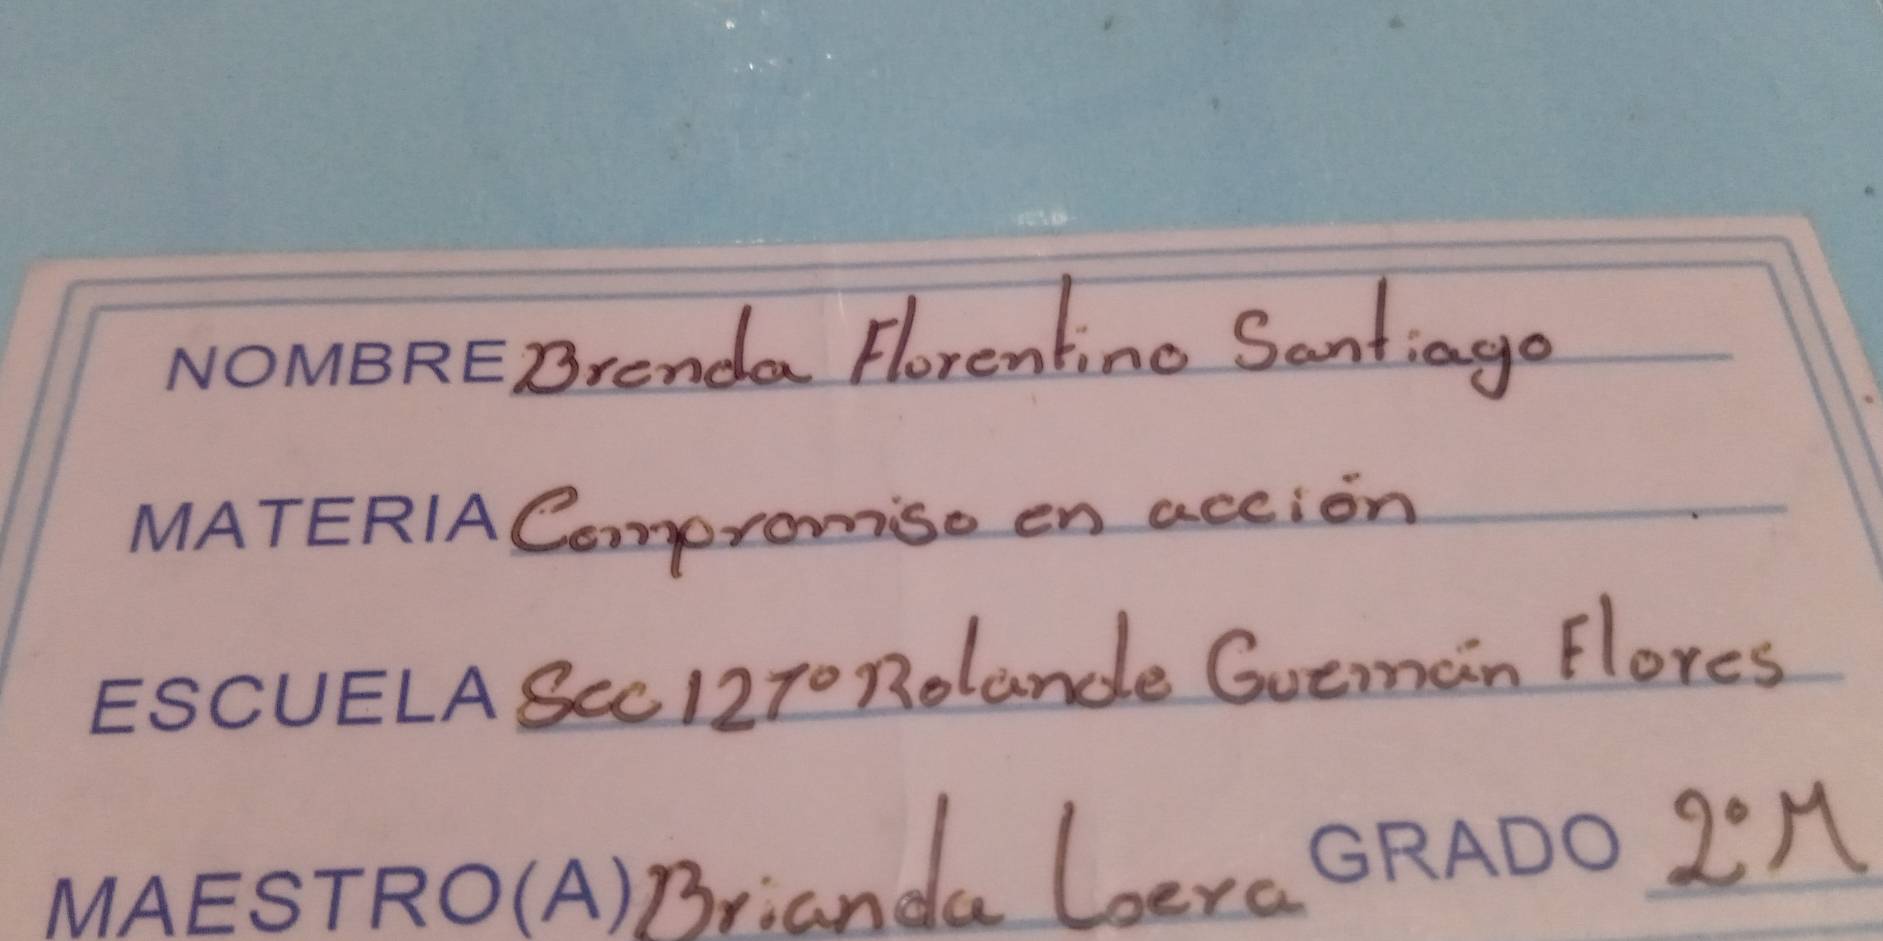 NOMBRE Brenda Florentino Santiago
MATERIA Compromiso en acción
ESCUELA Sec 127° Rolando Guemán Flores
MAESTRO(A) Brianda Loera GRADO 2° M